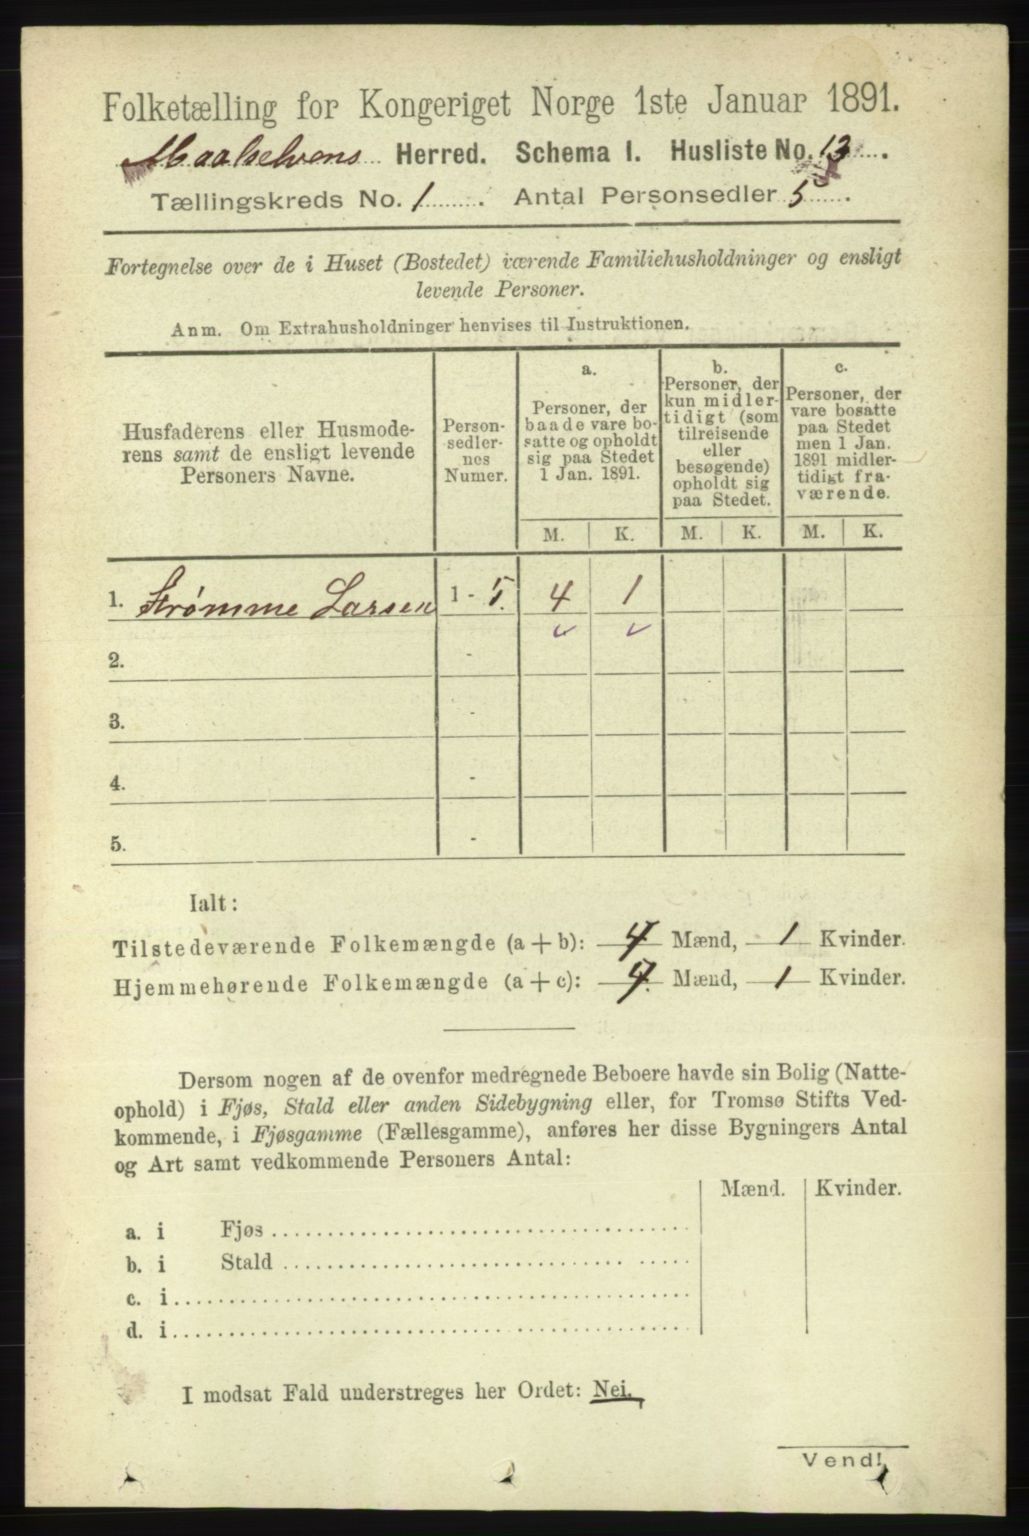 Folketælling for Kongeriget Norge 1ste Januar 1891.
Maalselvens Herred. Schema I. Husliste No. 13.
Tællingskreds No. 1. Antal Personsedler 5.
Fortegnelse over de i Huset (Bostedet) værende Familiehusholdninger og ensligt
levende Personer.
Anm. Om Extrahusholdninger henvises til Instruktionen.
Husfaderens eller Husmode-
rens samt de ensligt levende
Personers Navne.
Person-
sedler-
nes
Numer.
a.
Personer, der
baade vare bo-
satte og opholdt
sig paa Stedet
1 Jan. 1891.
b.
Personer, der
kun midler-
tidigt (som
tilreisende
eller
besøgende)
opholdt sig
paa Stedet.
c.
Personer, der
vare bosatte
paa Stedet
men 1 Jan.
1891 midler-
tidigt fra-
værende.
M. K. M. K. M. K.
1. Strømme Larsen 1 - 5. 4 1
2. -
3. -
4. -
5. -
Ialt:
Tilstedeværende Folkemængde (a + b): 4 Mænd, 1 Kvinder.
Hjemmehørende Folkemængde (a + c): 4 Mænd, 1 Kvinder.
Dersom nogen af de ovenfor medregnede Beboere havde sin Bolig (Natte-
ophold) i Fjøs, Stald eller anden Sidebygning eller, for Tromsø Stifts Ved-
kommende, i Fjøsgamme (Fællesgamme), anføres her disse Bygningers Antal
og Art samt vedkommende Personers Antal:
Mænd. Kvinder.
a. i Fjøs
b. i Stald
c. i
d. i
I modsat Fald understreges her Ordet: Nei.
Vend!